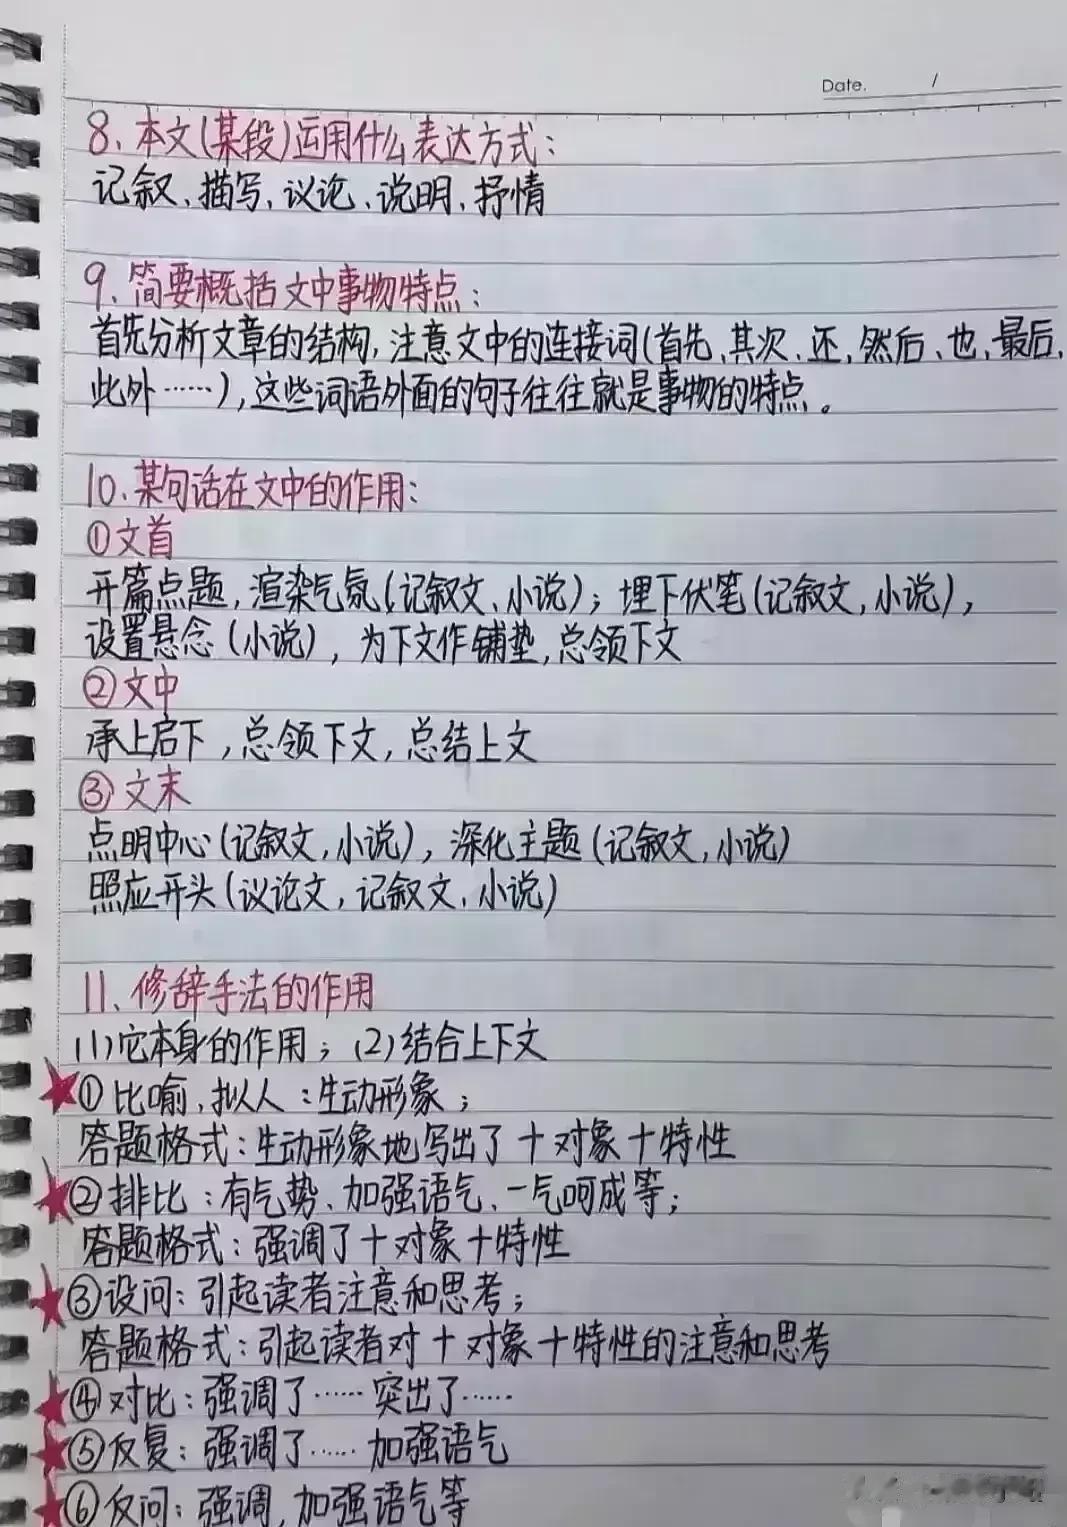 Date. /
8、本文(某段)运用什么表达方式：
记叙、描写、议论、说明、抒情
9、简要概括文中事物特点：
首先分析文章的结构，注意文中的连接词(首先、其次、还、然后、也、最后、
此外……)，这些词语外面的句子往往就是事物的特点。
10、某句话在文中的作用：
①文首
开篇点题，渲染气氛(记叙文、小说)；埋下伏笔(记叙文，小说)，
设置悬念(小说)，为下文作铺垫，总领下文
②文中
承上启下，总领下文，总结上文
③文末
点明中心(记叙文，小说)，深化主题(记叙文，小说)
照应开头(议论文，记叙文，小说)
11、修辞手法的作用
(1)它本身的作用；(2)结合上下文
①比喻、拟人：生动形象；
答题格式：生动形象地写出了+对象+特性
②排比：有气势、加强语气、一气呵成等；
答题格式：强调了+对象+特性
③设问：引起读者注意和思考；
答题格式：引起读者对+对象+特性的注意和思考
④对比：强调了……突出了……
⑤反复：强调了……加强语气
⑥反问：强调，加强语气等